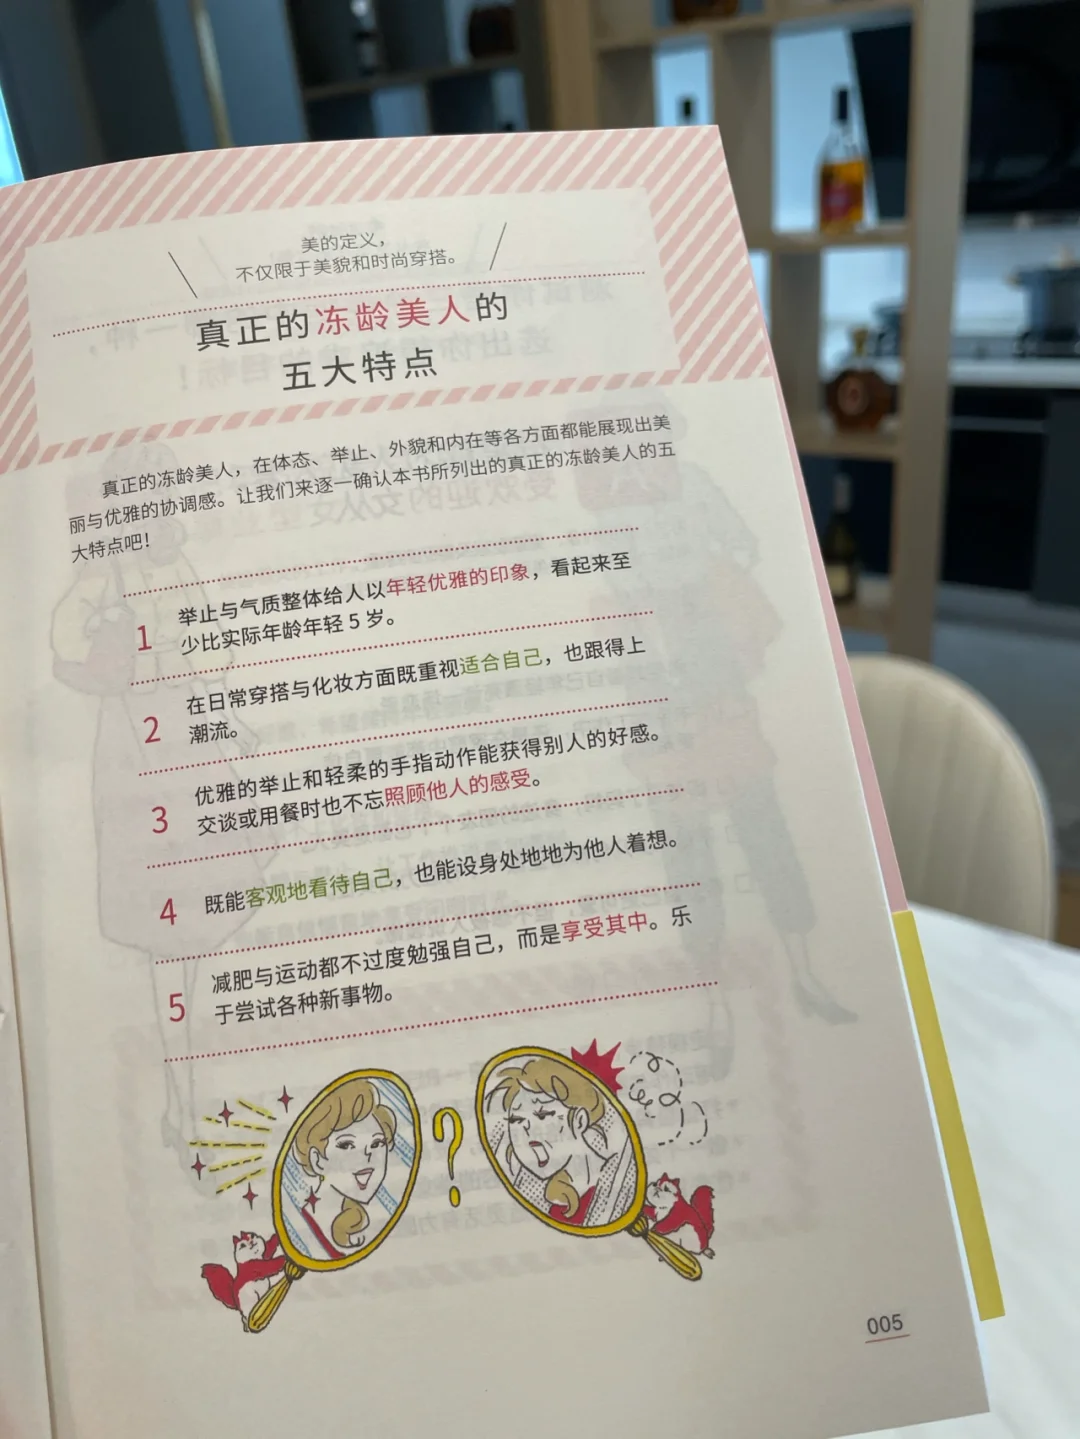 美的定义，
不仅限于美貌和时尚穿搭。
真正的冻龄美人的
五大特点
真正的冻龄美人，在体态、举止、外貌和内在等各方面都能展现出美
丽与优雅的协调感。让我们来逐一确认本书所列出的真正的冻龄美人的五
大特点吧！
1
举止与气质整体给人以年轻优雅的印象，看起来至
少比实际年龄年轻 5 岁。
2
在日常穿搭与化妆方面既重视适合自己，也跟得上
潮流。
3
优雅的举止和轻柔的手指动作能获得别人的好感。
交谈或用餐时也不忘照顾他人的感受。
4
既能客观地看待自己，也能设身处地地为他人着想。
5
减肥与运动都不过度勉强自己，而是享受其中。乐
于尝试各种新事物。
?
005